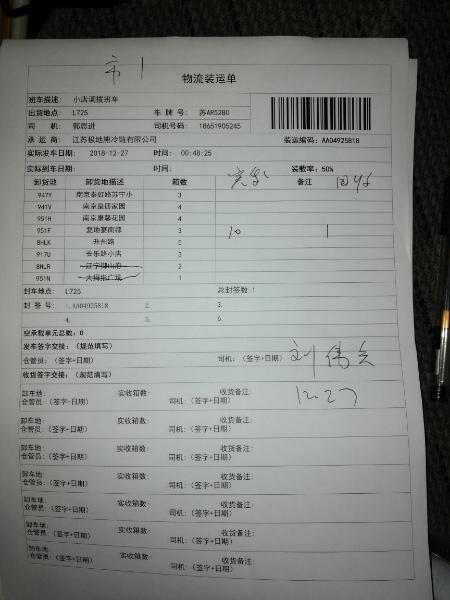 市1
物流装运单
班车描述: 小店调拨班车
出货地点: L725 车 牌 号: 苏AR5280
司 机: 郭思进 司机号码: 18651905245
承 运 商: 江苏极地熊冷链有限公司 装运编码: AA04925818
实际发车日期: 2018-12-27 时间: 00:48:25
实际到车日期: 时间: 装载率: 50%
卸货地 卸货地描述 箱数 备注
947Y 南京泰虹路苏宁小 3
941Y 南京皇册家园 4
951H 南京康馨花园 4
951F 复地宴南都 3 10 1
8HLK 升州路 5
917U 长乐路小店 3
8HLR 江宁御山府 2
951N 1
封车地点: L725 总封签数:1
封 签 号: 1.AA04925818 2. 3.
4. 5. 6.
空承载单元总数: 0
发车签字交接: (规范填写)
仓管员: (签字+日期) 司机: (签字+日期) 刘伟
收货签字交接: (规范填写)
12.27
卸车地: 实收箱数: 收货备注:
仓管员: (签字+日期) 司机: (签字+日期)
卸车地: 实收箱数: 收货备注:
仓管员: (签字+日期) 司机: (签字+日期)
卸车地: 实收箱数: 收货备注:
仓管员: (签字+日期) 司机: (签字+日期)
卸车地: 实收箱数: 收货备注:
仓管员: (签字+日期) 司机: (签字+日期)
卸车地: 实收箱数: 收货备注:
仓管员: (签字+日期) 司机: (签字+日期)
卸车地: 实收箱数: 收货备注:
仓管员: (签字+日期) 司机: (签字+日期)
卸车地: 实收箱数: 收货备注:
仓管员: (签字+日期) 司机: (签字+日期)